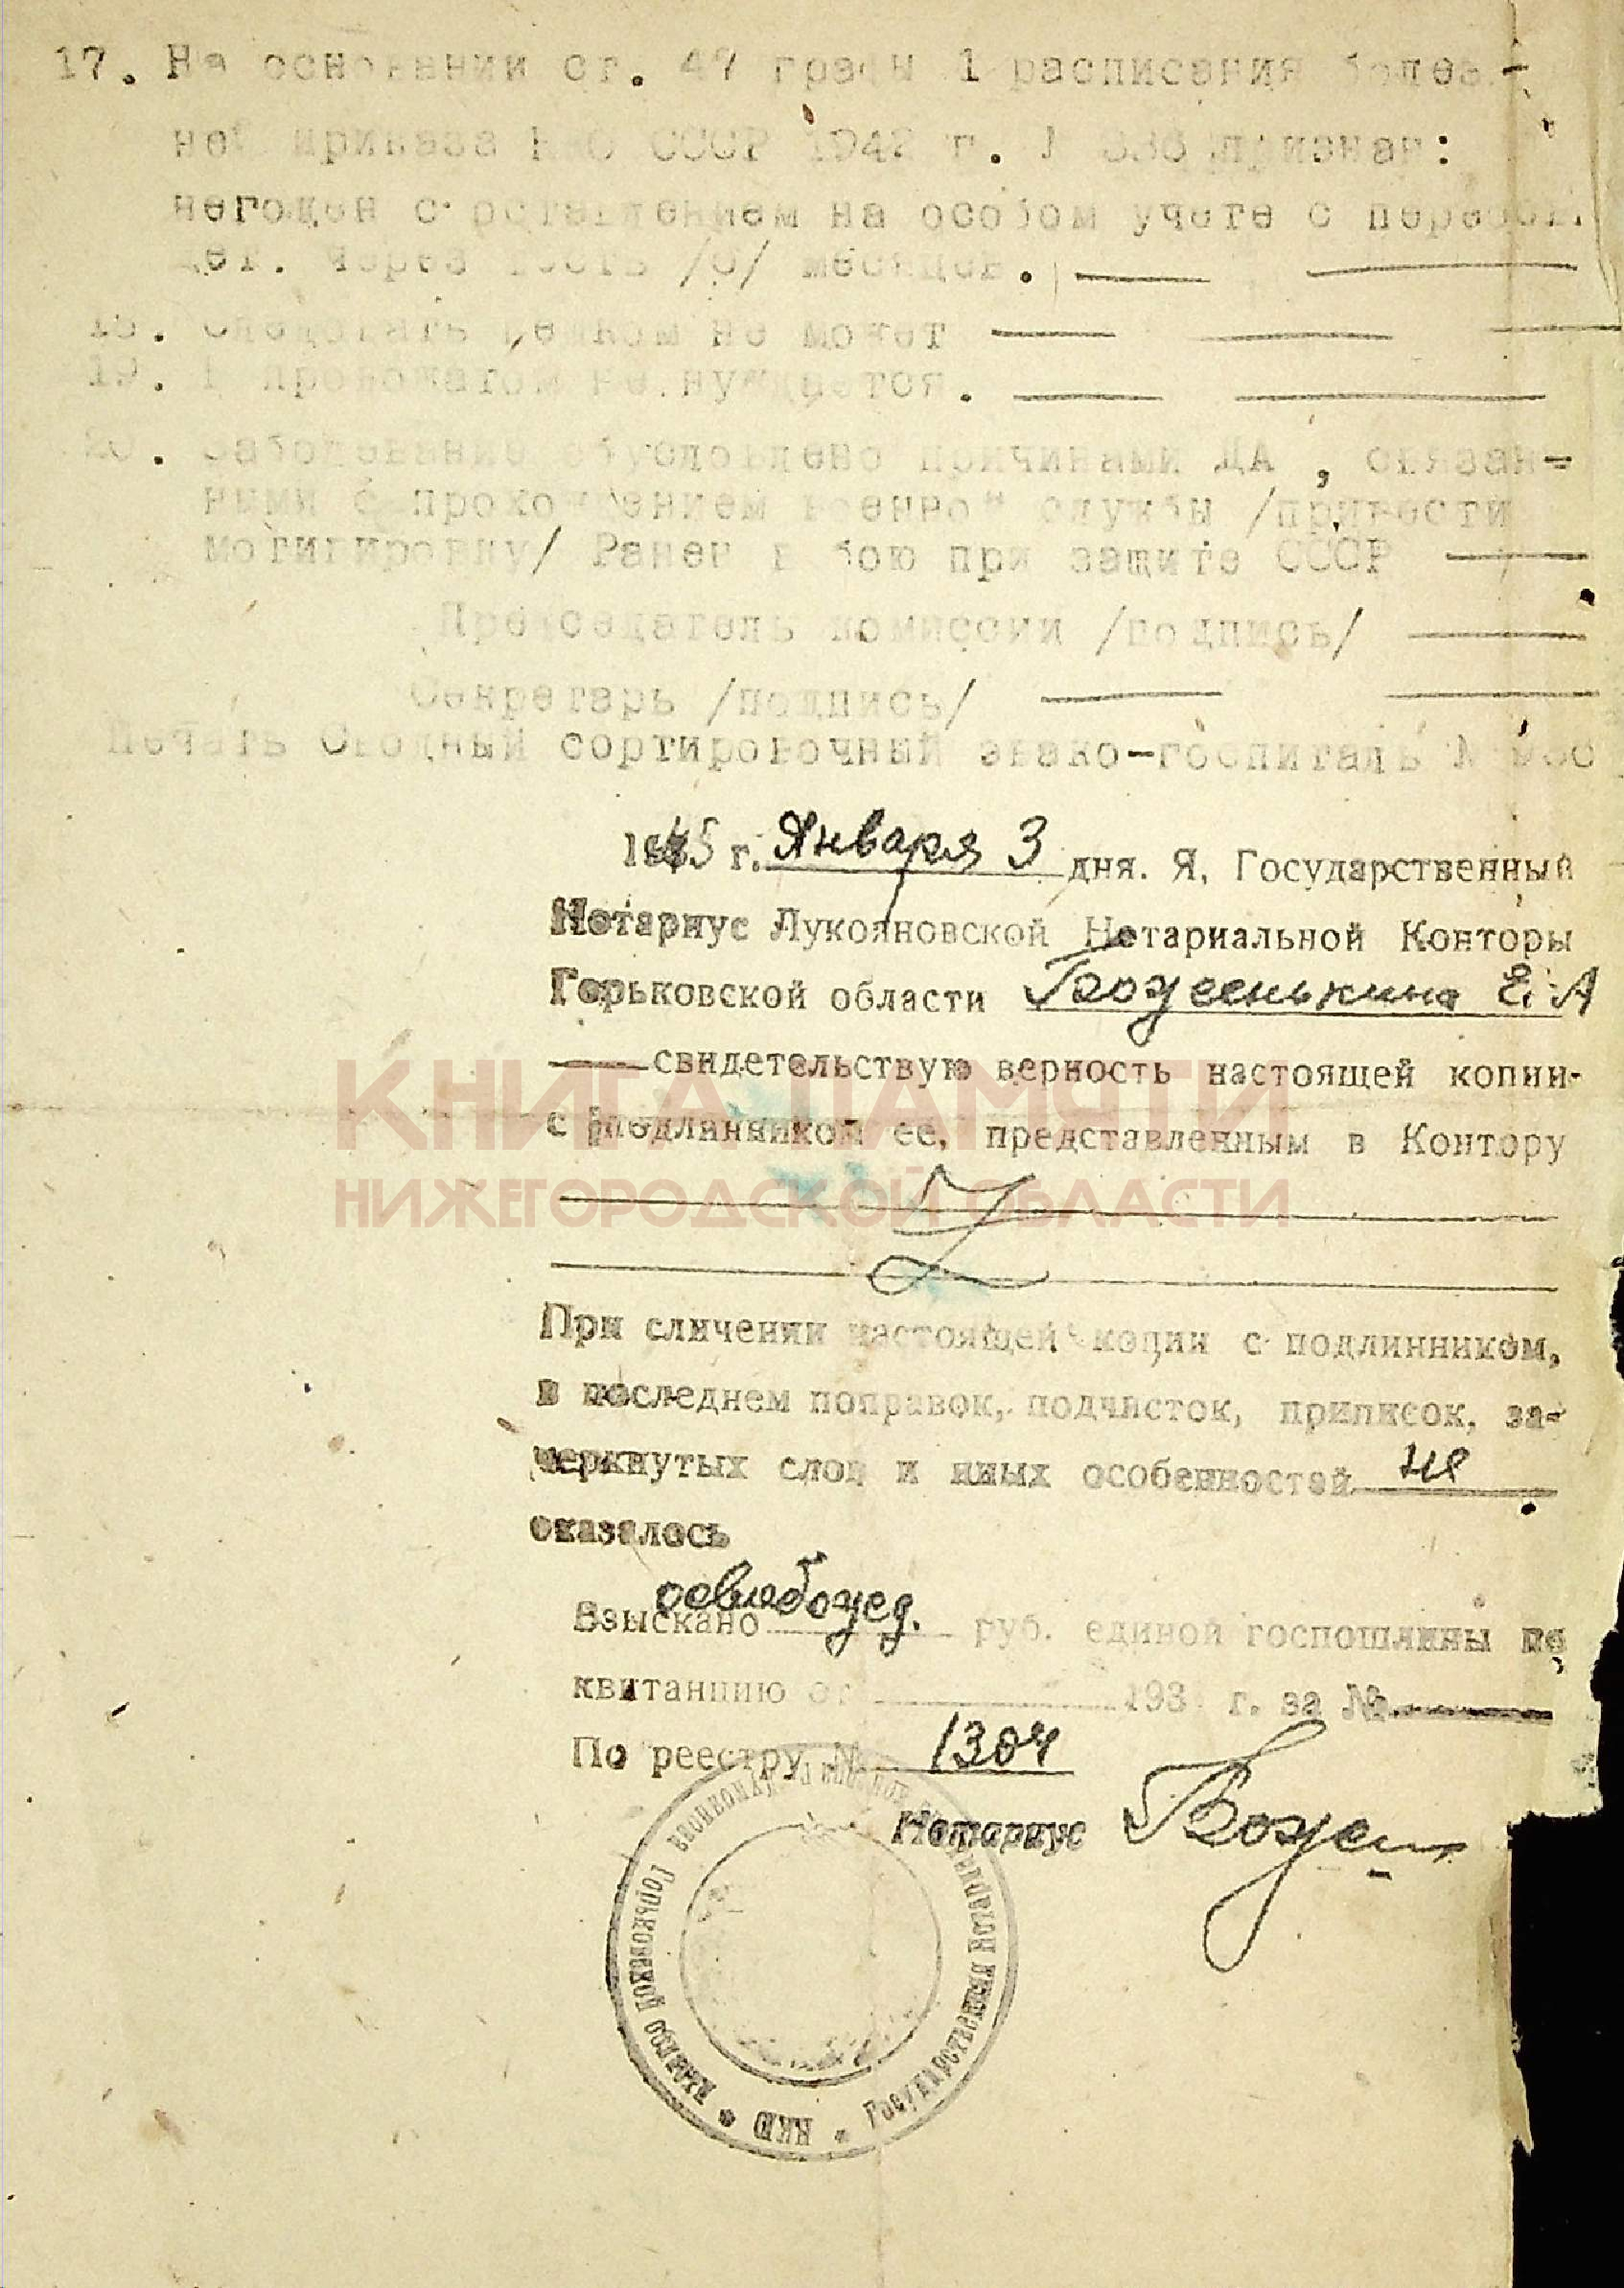 17. На основании ст. 47 графы 1 расписания болез-
ней приказа НКО СССР 1942 г. № 336 признан:
негоден с оставлением на особом учете с переосви
дет. через шесть /6/ месяцев.
18. Следовать пешком не может
19. В провожатом не нуждается.
20. Заболевание обусловлено причинами ДА, связан-
ными с прохождением военной службы /привести
мотивировку/ Ранен в бою при защите СССР
Председатель комиссии /подпись/
Секретарь /подпись/
Печать Сводный сортировочный эвако-госпиталь №
1945 г. Января 3 дня. Я, Государственный
Нотариус Лукояновской Нотариальной Конторы
Горьковской области Е. А
свидетельствую верность настоящей копии
с подлинником ее, представленным в Контору
КНИГА ПАМЯТИ
НИЖЕГОРОДСКОЙ ОБЛАСТИ
При сличении настоящей копии с подлинником,
в последнем поправок, подчисток, приписок, за-
черкнутых слов и иных особенностей не
оказалось
Взыскано освобожд. руб. единой госпошлины по
квитанцию от 193 г. за №
По реестру № 1304
Нотариус
Государственная Нотариальная Контора
Горьковской области
НКЮ